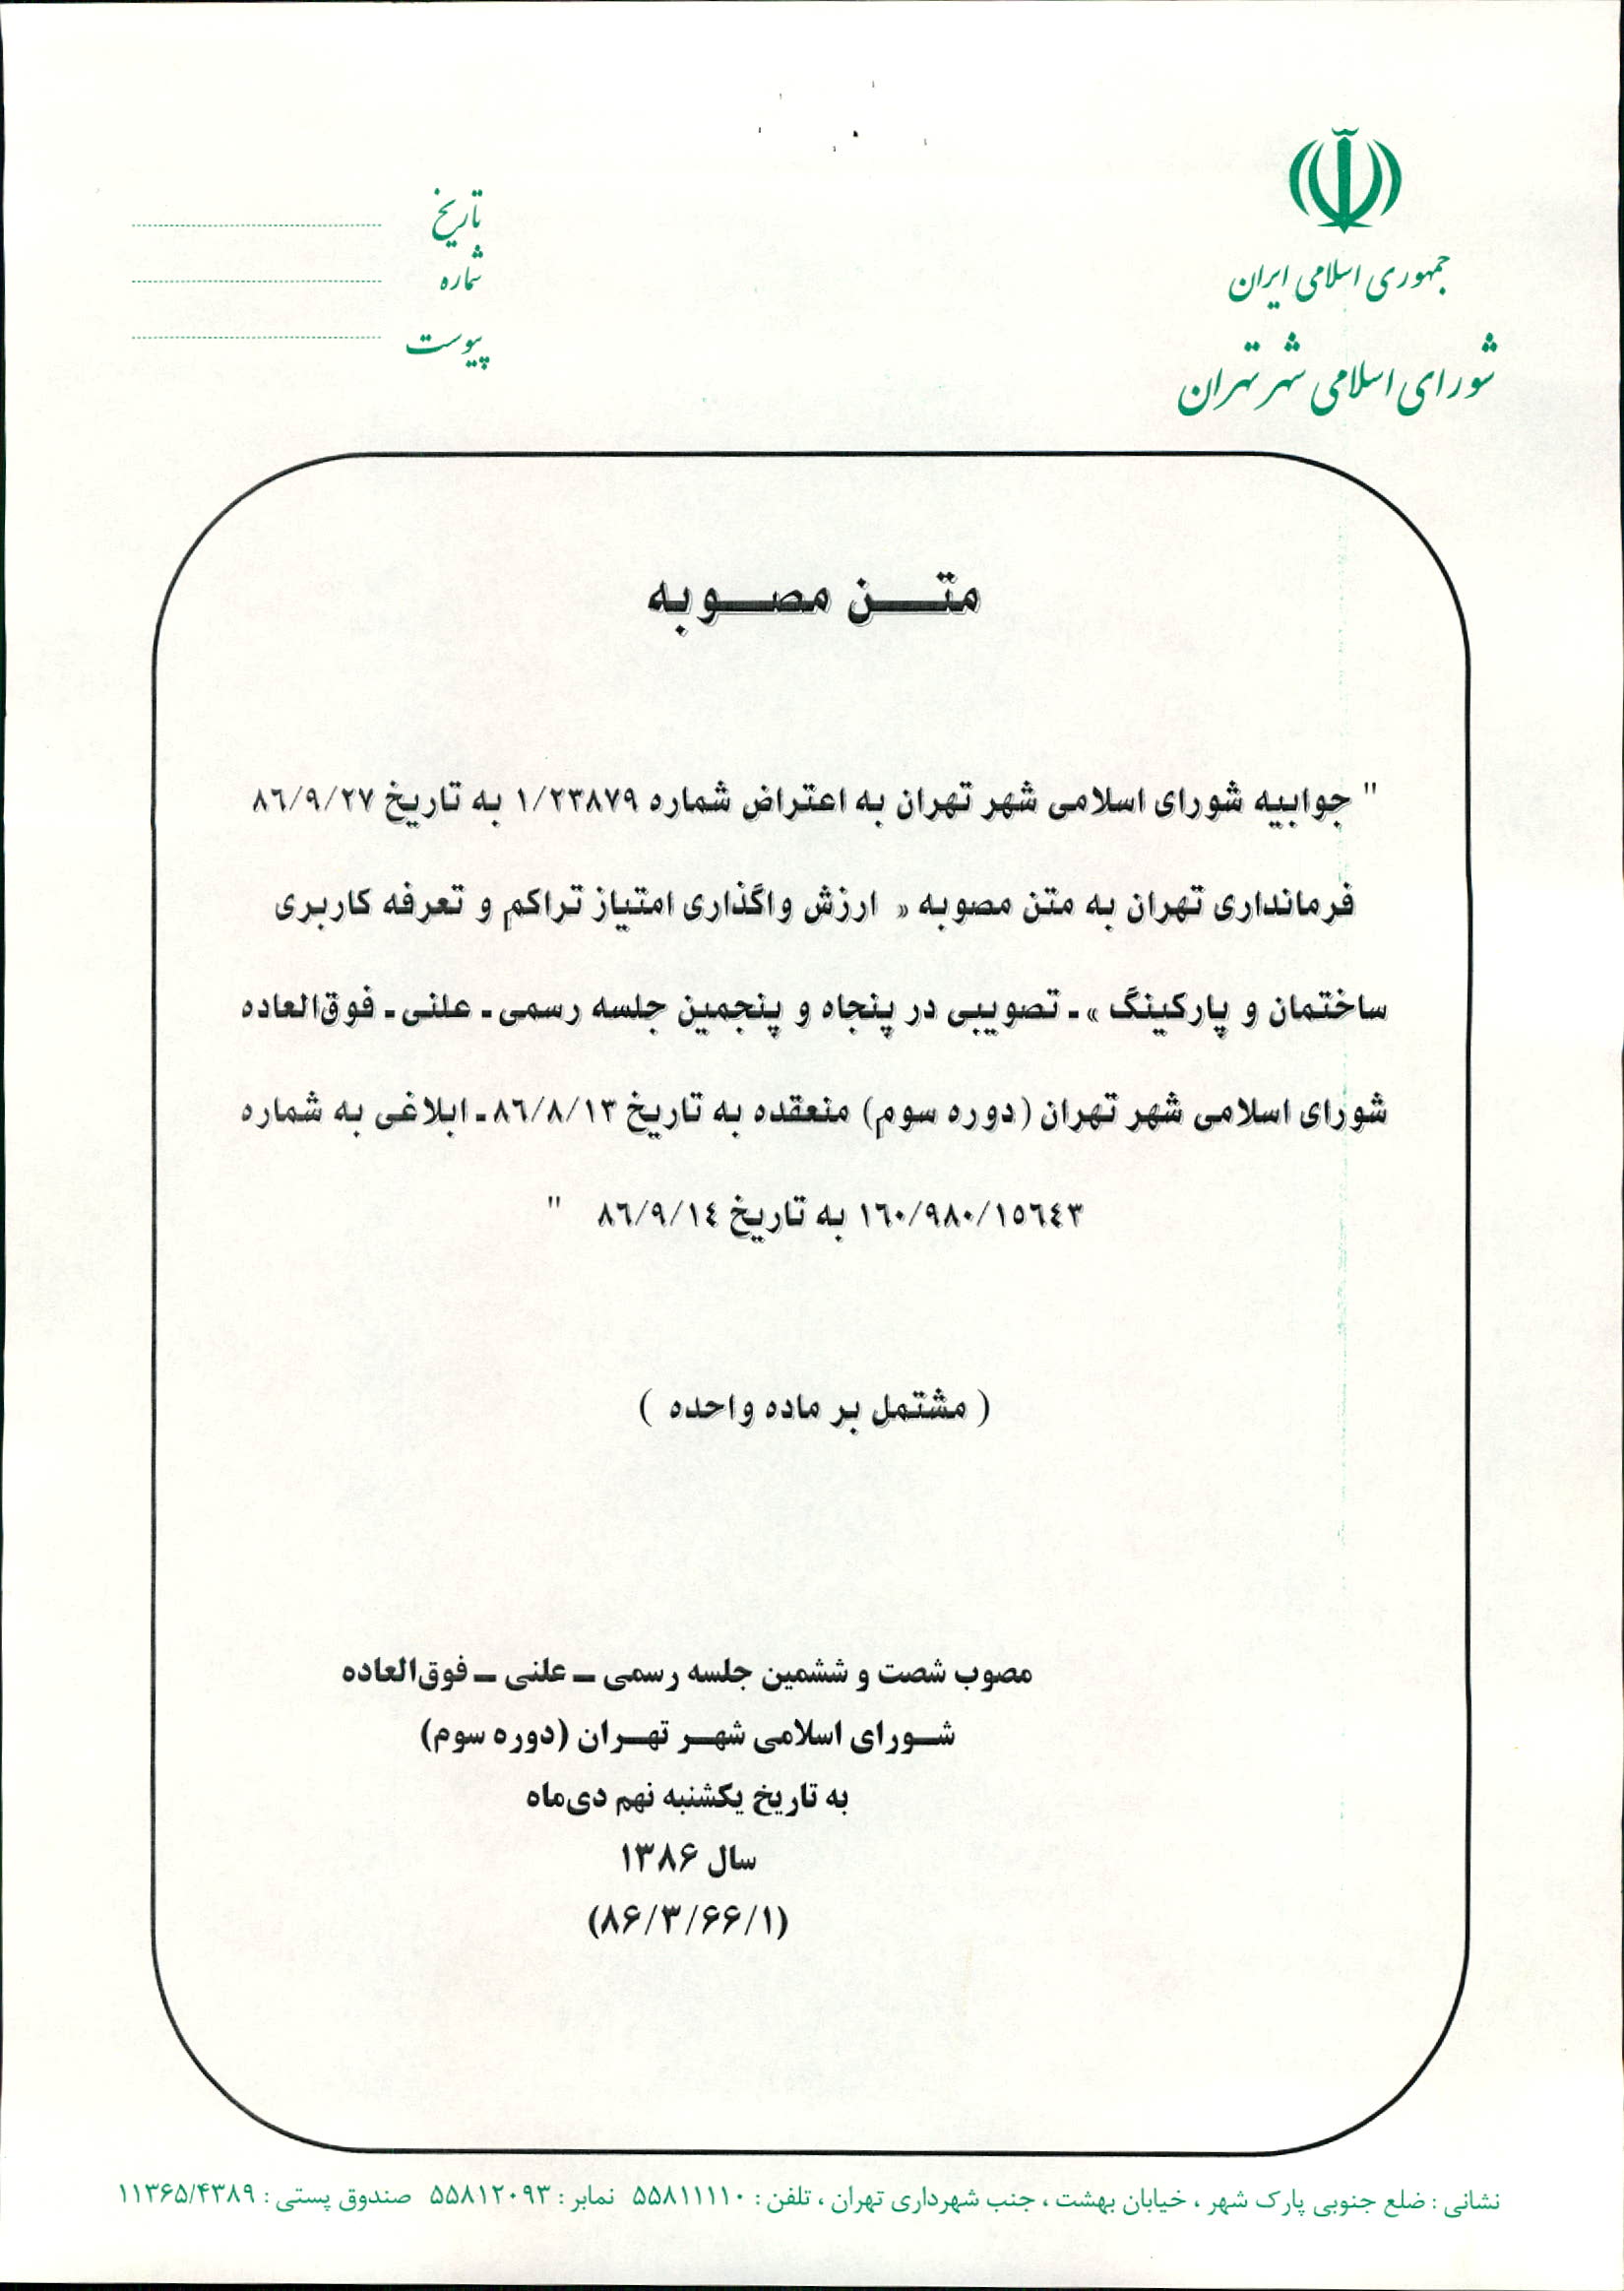 جمهوری اسلامی ایران
شورای اسلامی شهر تهران
تاریخ
شماره
پیوست
متن مصوبه
" جوابیه شورای اسلامی شهر تهران به اعتراض شماره ۱/۲۳۸۷۹ به تاریخ ۸٦/۹/۲۷
فرمانداری تهران به متن مصوبه « ارزش واگذاری امتیاز تراکم و تعرفه کاربری
ساختمان و پارکینگ »ـ تصویبی در پنجاه و پنجمین جلسه رسمی ـ علنی ـ فوق‌العاده
شورای اسلامی شهر تهران (دوره سوم) منعقده به تاریخ ۸٦/۸/۱۳ ـ ابلاغی به شماره
۱٦۰/۹۸۰/۱٥٦٤۳ به تاریخ ۸٦/۹/۱٤ "
( مشتمل بر ماده واحده )
مصوب شصت و ششمین جلسه رسمی ـ علنی ـ فوق‌العاده
شورای اسلامی شهر تهران (دوره سوم)
به تاریخ یکشنبه نهم دی‌ماه
سال ۱۳۸۶
(۸۶/۳/۶۶/۱)
نشانی : ضلع جنوبی پارک شهر ، خیابان بهشت ، جنب شهرداری تهران ، تلفن : ۵۵۸۱۱۱۱۰ نمابر : ۵۵۸۱۲۰۹۳ صندوق پستی : ۱۱۳۶۵/۴۳۸۹